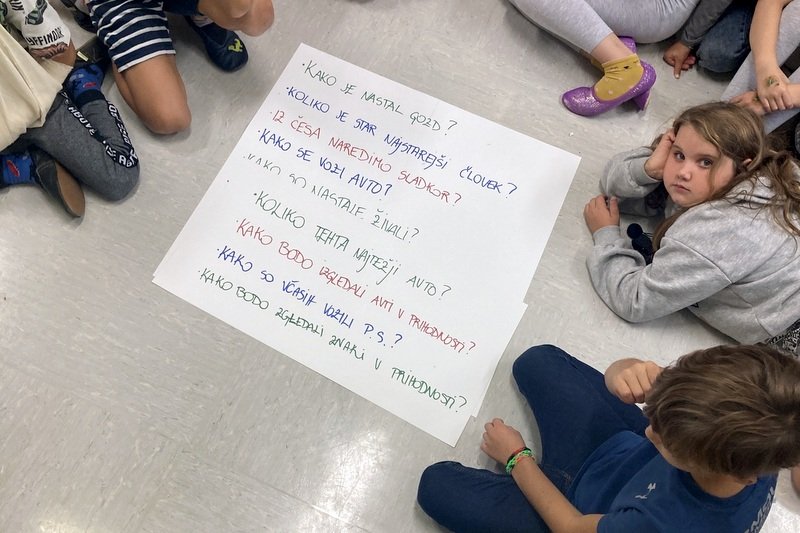 · KAKO JE NASTAL GOZD?
· KOLIKO JE STAR NAJSTAREJŠI ČLOVEK?
· IZ ČESA NAREDIMO SLADKOR?
· KAKO SE VOZI AVTO?
· KAKO SO NASTALE ŽIVALI?
· KOLIKO TEHTA NAJTEŽJI AVTO?
· KAKO BODO IZGLEDALI AVTI V PRIHODNOSTI?
· KAKO SO VČASIH VOZILI P.S.?
· KAKO BODO ZGLEDALI ZNAKI V PRIHODNOSTI?
GRYFFINDOR